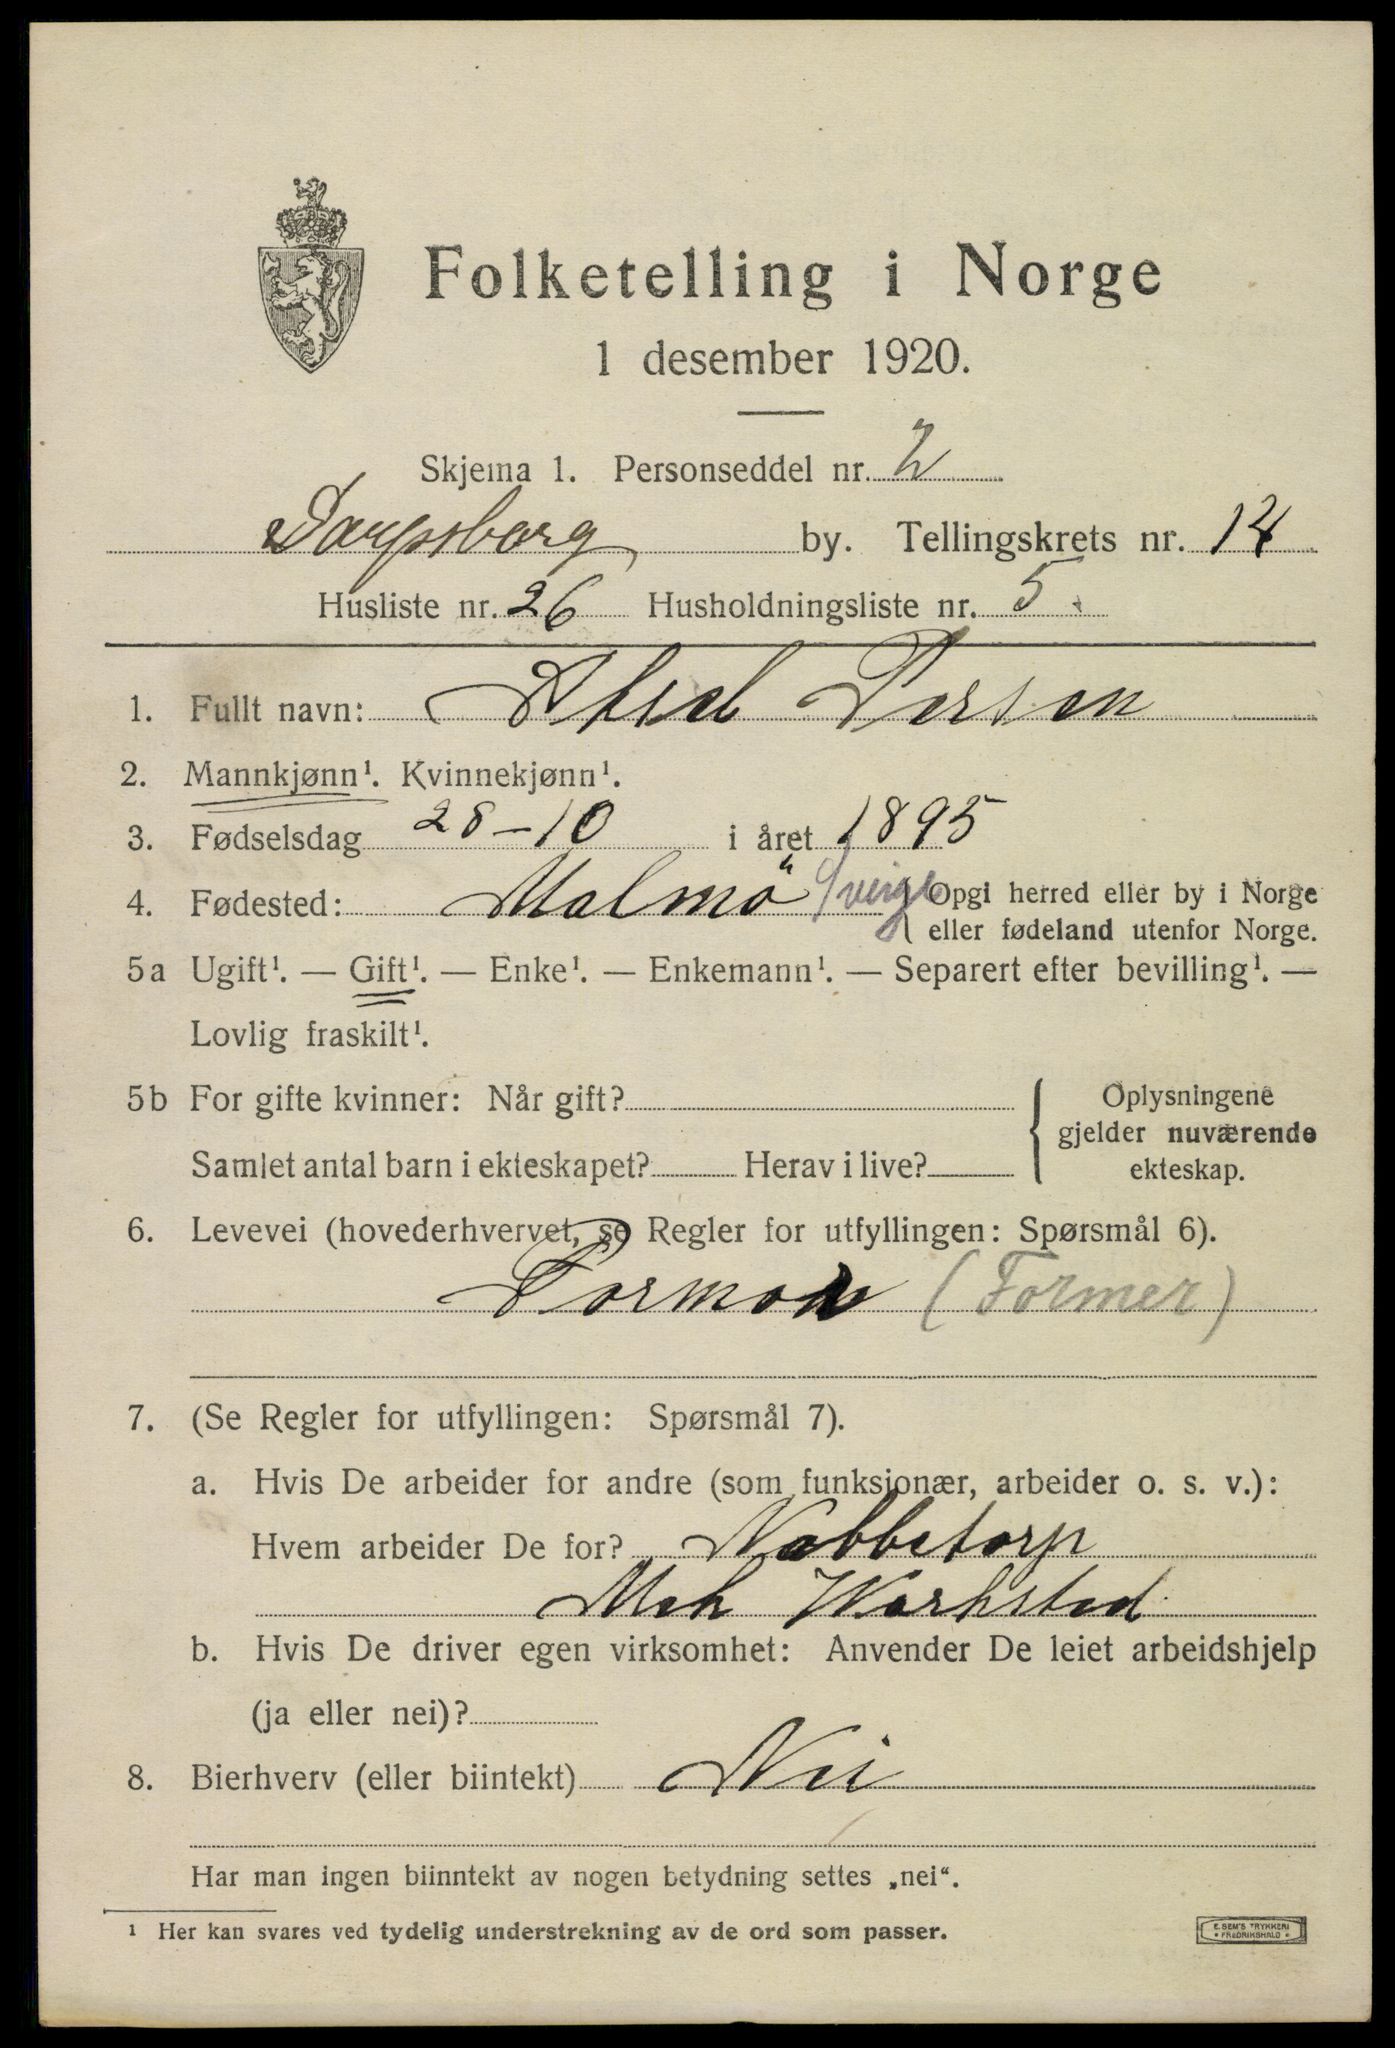 Folketelling i Norge
1 desember 1920.
Skjema 1. Personseddel nr. 2
Sarpsborg by. Tellingskrets nr. 14
Husliste nr. 26 Husholdningsliste nr. 5.
1. Fullt navn: Aksel Person
2. Mannkjønn¹. Kvinnekjønn¹.
3. Fødselsdag 28-10 i året 1895
4. Fødested: Malmö Sverige { Opgi herred eller by i Norge
eller fødeland utenfor Norge.
5a Ugift¹. — Gift¹. — Enke¹. — Enkemann¹. — Separert efter bevilling¹. —
Lovlig fraskilt¹.
5b For gifte kvinner: Når gift?
Samlet antal barn i ekteskapet? Herav i live?
{ Oplysningene
gjelder nuværende
ekteskap.
6. Levevei (hovederhvervet, se Regler for utfyllingen: Spørsmål 6).
(Former)
7. (Se Regler for utfyllingen: Spørsmål 7).
a. Hvis De arbeider for andre (som funksjonær, arbeider o. s. v.):
Hvem arbeider De for? Nabbetorp
Mek Werksted
b. Hvis De driver egen virksomhet: Anvender De leiet arbeidshjelp
(ja eller nei)?
8. Bierhverv (eller biintekt) Nei
Har man ingen biinntekt av nogen betydning settes „nei“.
¹ Her kan svares ved tydelig understrekning av de ord som passer.
E. SEM'S TRYKKERI
• FREDRIKSHALD •